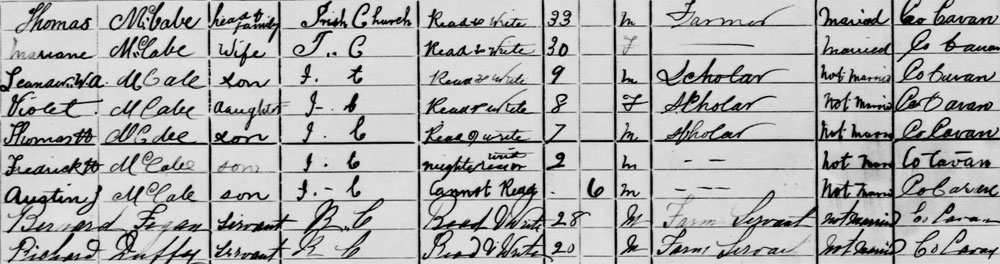 Thomas McCabe head of family Irish Church Read & Write 33 M Farmer Maried Co Cavan
Mariane McCabe Wife I.. C Read & Write 30 F — Married Co Cavan
W.A. McCabe son I. C Read & Write 9 M Scholar Not Married Co Cavan
Violet McCabe daughter I- C Read & Write 8 F Scholar Not Co Cavan
Thomas H McCabe son I. C Read & write 7 M Scholar Not Co Cavan
Fredrick H McCabe son I. C 2 M - - Not Co Cavan
Austin J McCabe son I.- C Cannot Read . 6 M - — Not Co Cavan
Bernard Fegan Servant R.. C Read & Write 28 M Farm Servant Not Married Co Cavan
Richard Duffy Servant R C Read & Write 20 M Farm Servant Not Co Cavan